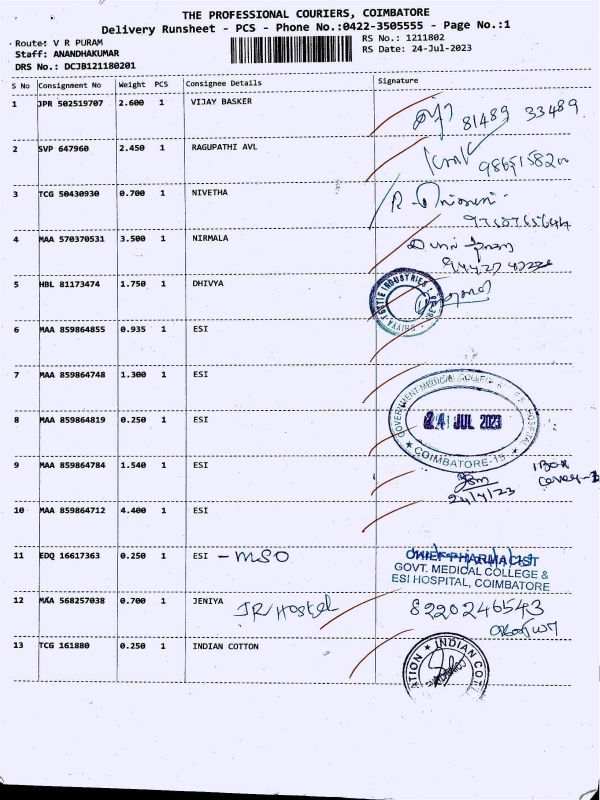 THE PROFESSIONAL COURIERS, COIMBATORE
Delivery Runsheet - PCS - Phone No.:0422-3505555 - Page No.:1
Route: V R PURAM
RS No.: 1211802
Staff: ANANDHAKUMAR
RS Date: 24-Jul-2023
DRS No.: DCJB121180201
S No Consignment No Weight PCS Consignee Details Signature
1 JPR 502519707 2.600 1 VIJAY BASKER
81489 33489
2 SVP 647960 2.450 1 RAGUPATHI AVL
3 TCG 50430930 0.700 1 NIVETHA
4 MAA 570370531 3.500 1 NIRMALA
5 HBL 81173474 1.750 1 DHIVYA
6 MAA 859864855 0.935 1 ESI
7 MAA 859864748 1.300 1 ESI
GOVERNMENT MEDICAL COLLEGE HOSPITAL
8 MAA 859864819 0.250 1 ESI
24 JUL 2023
COIMBATORE-15
9 MAA 859864784 1.540 1 ESI
1 Box
24/7/23
10 MAA 859864712 4.400 1 ESI
11 EDQ 16617363 0.250 1 ESI - MSO
CHIEF PHARMACIST
GOVT. MEDICAL COLLEGE &
ESI HOSPITAL, COIMBATORE
12 MAA 568257038 0.700 1 JENIYA JR Hostel
8220246543
13 TCG 161880 0.250 1 INDIAN COTTON
INDIAN